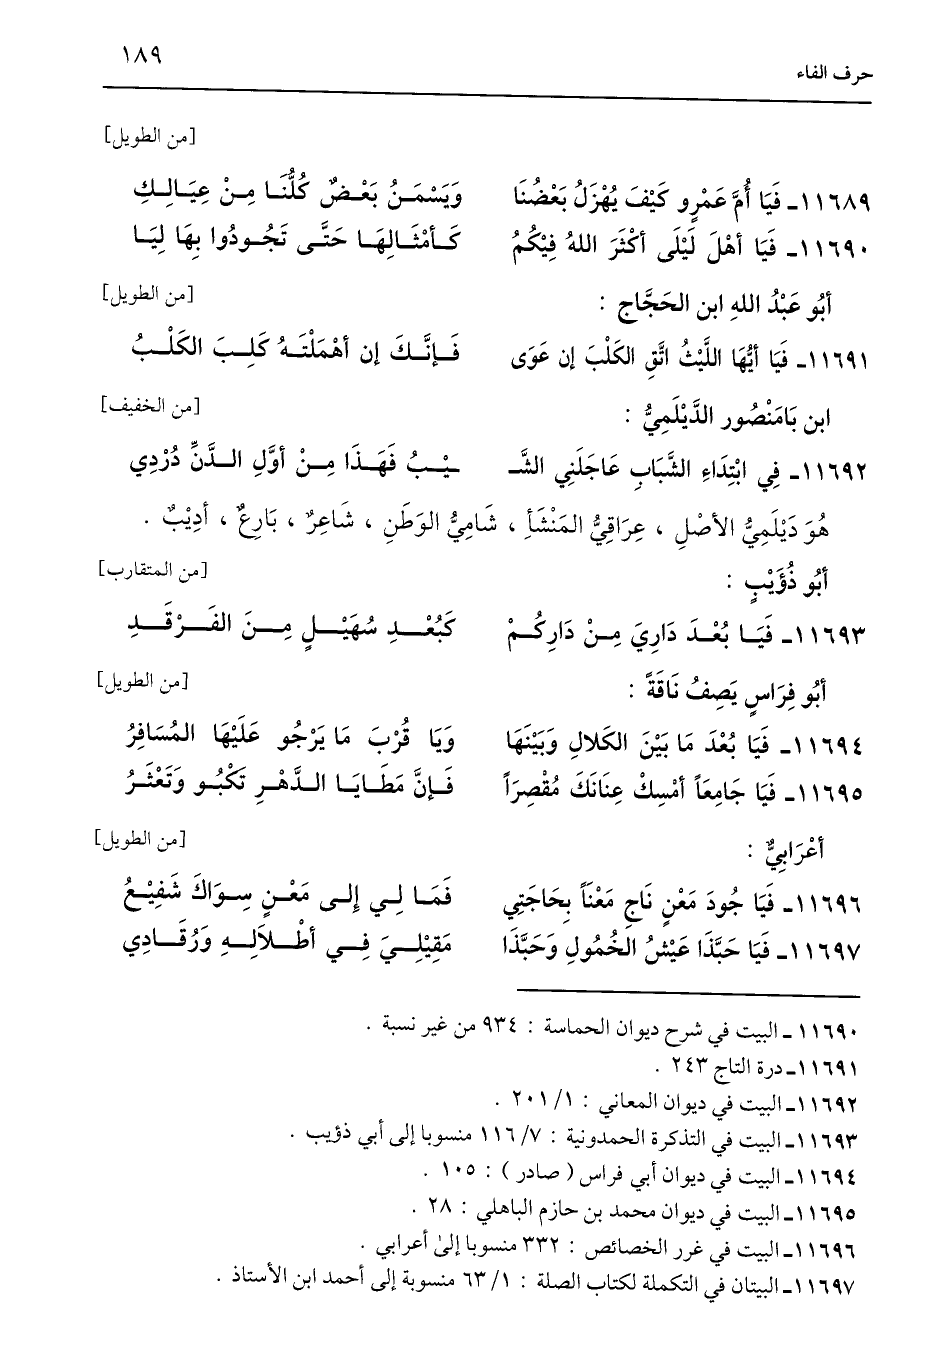 ١٨٩
حرف الفاء
[من الطويل]
١١٦٨٩ـ فَيَا أُمَّ عَمْرٍو كَيْفَ يُهْزَلُ بَعْضُنَا وَيَسْمَنُ بَعْضٌ كُلُّنَا مِنْ عِيَالِكِ
١١٦٩٠ـ فَيَا أهْلَ لَيْلَى أكْثَرَ اللهُ فِيْكُمُ كَأمْثَالِهَا حَتَّى تَجُودُوا بِهَا لِيَا
أبُو عَبْدُ اللهِ ابن الحَجَّاجِ : [من الطويل]
١١٦٩١ـ فَيَا أيُّهَا اللَّيْثُ اتَّقِ الكَلْبَ إن عَوَى فَإنَّكَ إن أهْمَلْتَهُ كَلِبَ الكَلْبُ
ابن بَامَنْصُور الدَّيْلَمِيُّ : [من الخفيف]
١١٦٩٢ـ فِي ابْتِدَاءِ الشَّبَابِ عَاجَلَنِي الشَّـ ـيْبُ فَهَذَا مِنْ أوَّلِ الدَّنِّ دُرْدِي
هُوَ دَيْلَمِيُّ الأصْلِ ، عِرَاقِيُّ المَنْشَأِ ، شَامِيُّ الوَطَنِ ، شَاعِرٌ ، بَارِعٌ ، أدِيْبٌ .
أبُو ذُؤَيْبٍ : [من المتقارب]
١١٦٩٣ـ فَيَا بُعْدَ دَارِيَ مِنْ دَارِكُمْ كَبُعْدِ سُهَيْلٍ مِنَ الفَرْقَدِ
أبُو فِرَاسٍ يَصِفُ نَاقَةً : [من الطويل]
١١٦٩٤ـ فَيَا بُعْدَ مَا بَيْنَ الكَلالِ وَبَيْنَهَا وَيَا قُرْبَ مَا يَرْجُو عَلَيْهَا المُسَافِرُ
١١٦٩٥ـ فَيَا جَامِعَاً أمْسِكْ عِنَانَكَ مُقْصِرَاً فَإنَّ مَطَايَا الدَّهْرِ تَكْبُو وَتَعْثَرُ
أعْرَابِيٌّ : [من الطويل]
١١٦٩٦ـ فَيَا جُودَ مَعْنٍ نَاجِ مَعْنَاً بِحَاجَتِي فَمَا لِي إلى مَعْنٍ سِوَاكَ شَفِيْعُ
١١٦٩٧ـ فَيَا حَبَّذَا عَيْشُ الخُمُولِ وَحَبَّذَا مَقِيْلِيَ فِي أظْلاَلِهِ وَرُقَادِي
١١٦٩٠ـ البيت في شرح ديوان الحماسة : ٩٣٤ من غير نسبة .
١١٦٩١ـ درة التاج ٢٤٣ .
١١٦٩٢ـ البيت في ديوان المعاني : ١/ ٢٠١ .
١١٦٩٣ـ البيت في التذكرة الحمدونية : ٧/ ١١٦ منسوبا إلى أبي ذؤيب .
١١٦٩٤ـ البيت في ديوان أبي فراس ( صادر ) : ١٠٥ .
١١٦٩٥ـ البيت في ديوان محمد بن حازم الباهلي : ٢٨ .
١١٦٩٦ـ البيت في غرر الخصائص : ٣٣٢ منسوبا إلى أعرابي .
١١٦٩٧ـ البيتان في التكملة لكتاب الصلة : ١/ ٦٣ منسوبة إلى أحمد ابن الأستاذ .